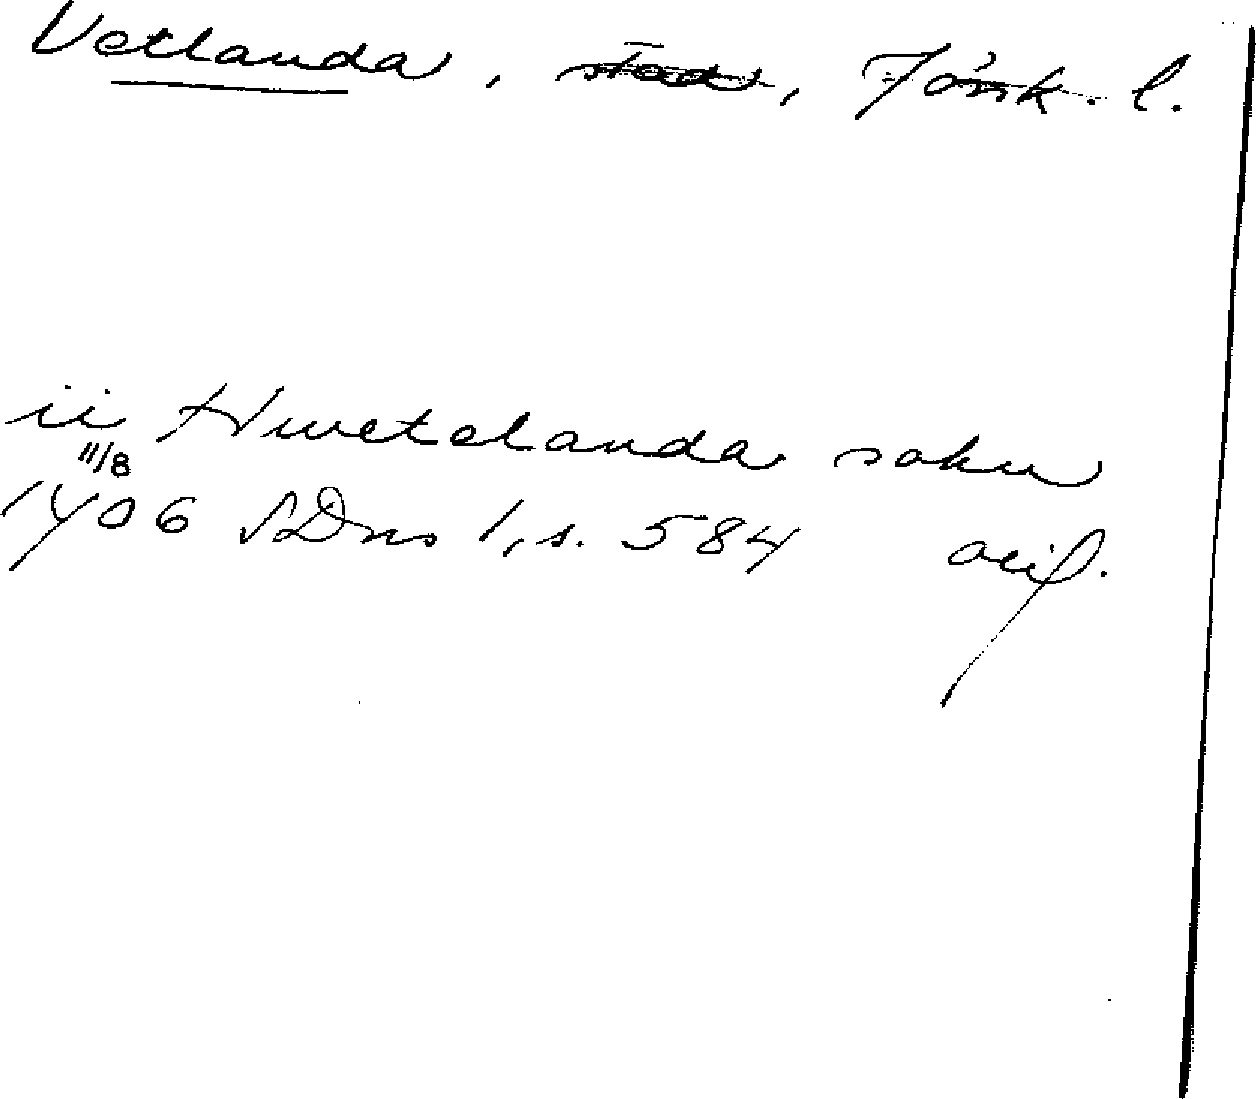 Vetlanda, stad, Jönk. l.
ii Hwetelanda sokn
11/8
1406 SDns 1, s. 584 avif.